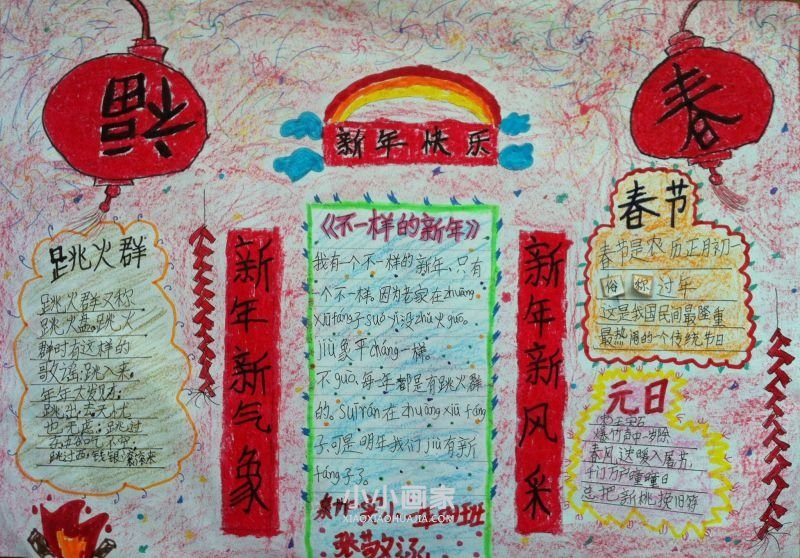 福
春
新年快乐
跳火群
跳火群又称
跳火盘。跳火
群时有这样的
歌谣:跳入来。
年年大发财;
跳出去
也无虑;跳过
跳过西,钱银滚滚来
新年新气象
《不一样的新年》
我有一个不一样的新年,只有
一个不一样。因为老家在zhuāng
xiū fáng子suǒ yǐ没zhǔ火guō。
jiù象平cháng一样。
不guò,每年都是有跳火群
的。Suī rán在zhuāng xiū fáng
子,可是明年我们jiù有新
fáng子了。
新年新风采
春节
春节是农历正月初一
俗称过年
这是我国民间最隆重
最热闹的一个传统节日
元日
爆竹声中一岁除
春风送暖入屠苏
千门万户曈曈日
总把新桃换旧符
小小画家
XIAOXIAOHUAJIA.COM